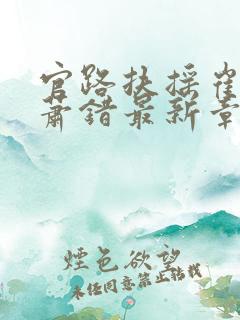 官路扶摇崔
萧错最新章
煙色欲望
未经同意禁止转载